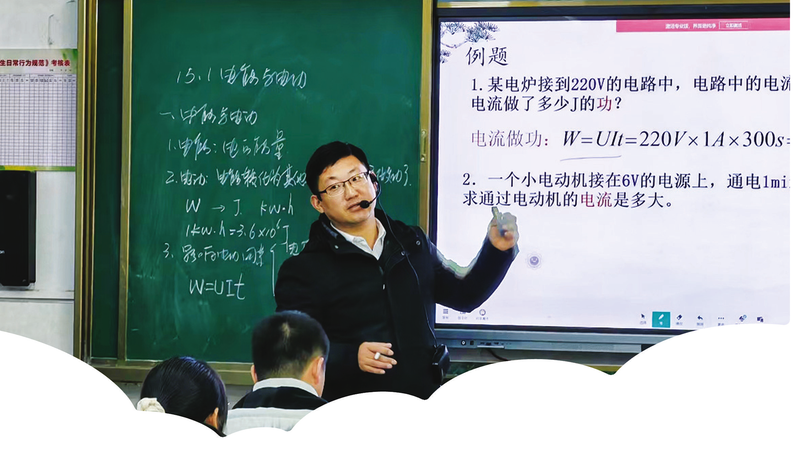 生日常行为规范》考核表
15.1 电能与电功
一、电能与电功
1.电能:电
2.电功:电能转化为其他
W → J. kw·h
1kw·h=3.6×10⁶J
3.
W=UIt
例题
1.某电炉接到220V的电路中,电路中的电流
电流做了多少J的功?
电流做功:W=UIt=220V×1A×300s=
2.一个小电动机接在6V的电源上,通电1mi
求通过电动机的电流是多大。